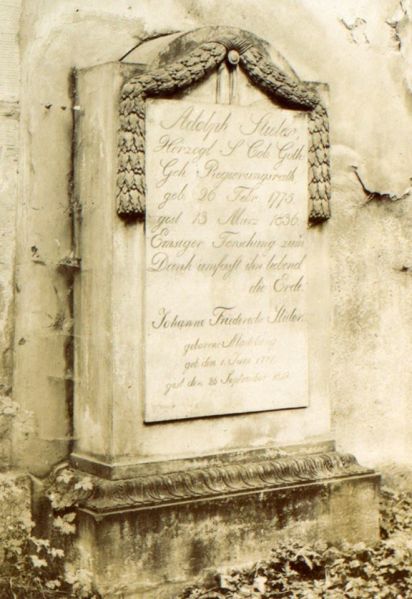 Adolph Stieler,
Herzogl. S. Cob. Goth.
Geh. Regierungsrath
geb. 26 Febr. 1775.
gest. 13 März 1836.
Emsiger Forschung zum
Dank umfasst ihn liebend
die Erde.
Johanne Friederike Stieler,
geborene
geb. den 1. Juni
gest. den 25 September